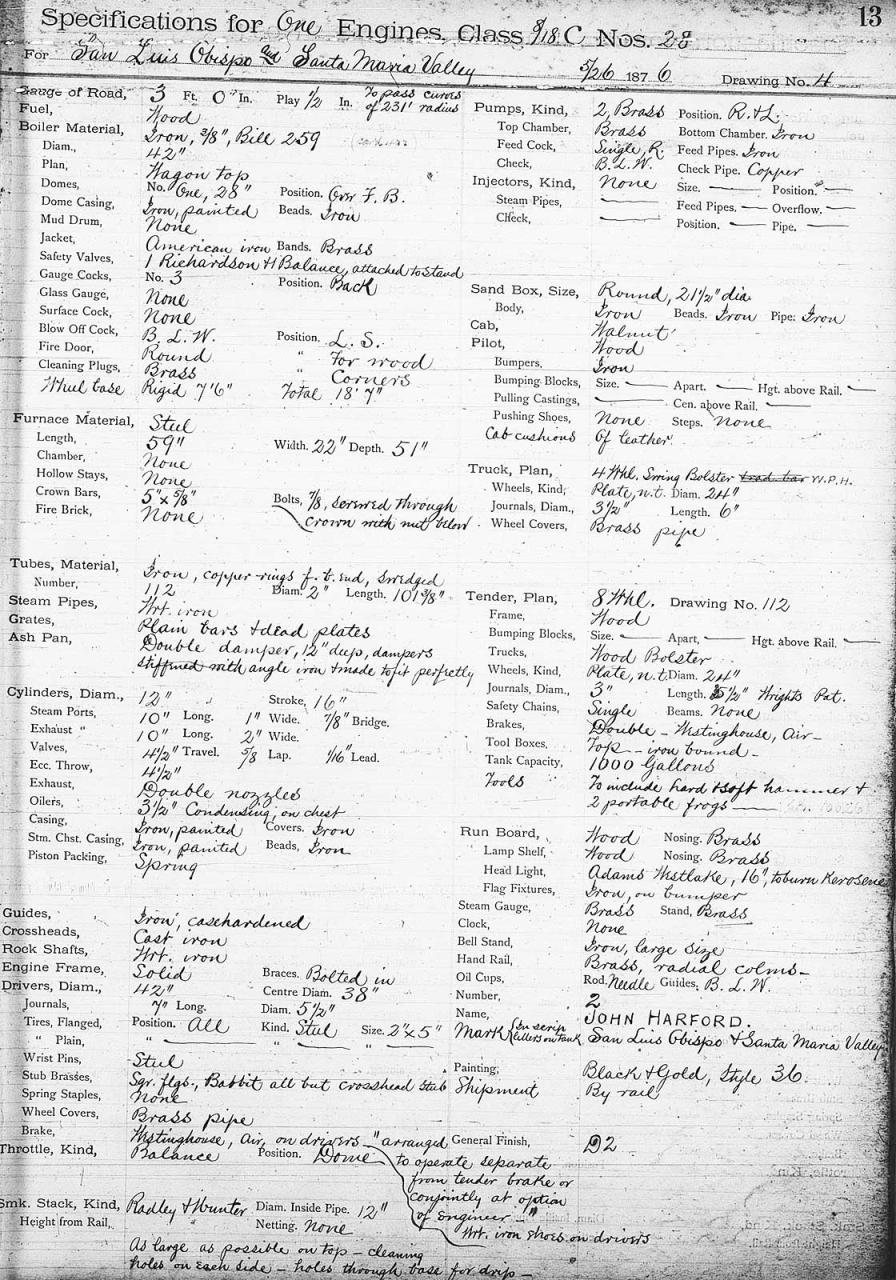 13
Specifications for One Engines, Class 8/18 C Nos. 28
For San Luis Obispo and Santa Maria Valley 5/26 1876 Drawing No. 4
Gauge of Road, 3 Ft. 0 In. Play 1/2 In. To pass curves of 231' radius
Fuel, Wood
Boiler Material, Iron, 3/8", Bill 259
Diam., 42"
Plan, Wagon top
Domes, No. One, 28" Position. Over F. B.
Dome Casing, Iron, painted Beads. Iron
Mud Drum, None
Jacket, American iron Bands. Brass
Safety Valves, 1 Richardson & 1 Balance, attached to stand
Gauge Cocks, No. 3 Position. Back
Glass Gauge, None
Surface Cock, None
Blow Off Cock, B. L. W. Position. L. S.
Fire Door, Round " For wood
Cleaning Plugs, Brass " Corners
Wheel base Rigid 7'6" Total 18'7"
Furnace Material, Steel
Length, 59" Width. 22" Depth. 51"
Chamber, None
Hollow Stays, None
Crown Bars, 5" x 5/8" Bolts, 7/8, screwed through
Fire Brick, None crown with nut below
Tubes, Material, Iron, copper rings f. t. end, swedged
Number, 112 Diam. 2" Length. 101 3/8"
Steam Pipes, Wrt. iron
Grates, Plain bars & dead plates
Ash Pan, Double damper, 12" deep, dampers
stiffened with angle iron & made to fit perfectly
Cylinders, Diam., 12" Stroke, 16"
Steam Ports, 10" Long. 1" Wide. 7/8" Bridge.
Exhaust " 10" Long. 2" Wide.
Valves, 4 1/2" Travel. 5/8 Lap. 1/16" Lead.
Ecc. Throw, 4 1/2"
Exhaust, Double nozzles
Oilers, 3 1/2" Condensing, on chest
Casing, Iron, painted Covers. Iron
Stm. Chst. Casing, Iron, painted Beads, Iron
Piston Packing, Spring
Guides, Iron, casehardened
Crossheads, Cast iron
Rock Shafts, Wrt. iron
Engine Frame, Solid Braces. Bolted in
Drivers, Diam., 42" Centre Diam. 38"
Journals, 7" Long. Diam. 5 1/2"
Tires, Flanged, Position. All Kind. Steel Size. 2" x 5"
" Plain, " " "
Wrist Pins, Steel
Stub Brasses, Sqr. flgs., Babbit all but crosshead stub
Spring Staples, None
Wheel Covers, Brass pipe
Brake, Westinghouse, Air, on drivers — "arranged
Throttle, Kind, Balance Position. Dome
to operate separate
from tender brake or
conjointly at option
of Engineer — "
Wrt. iron shoes on drivers
Smk. Stack, Kind, Radley & Hunter Diam. Inside Pipe. 12"
Height from Rail, " Netting. None
As large as possible on top — cleaning
holes on each side — holes through base for drip —
Pumps, Kind, 2, Brass Position. R. & L.
Top Chamber, Brass Bottom Chamber. Iron
Feed Cock, Single, R. Feed Pipes. Iron
Check, B. L. W. Check Pipe. Copper
Injectors, Kind, None Size. — Position. —
Steam Pipes, — Feed Pipes. — Overflow. —
Check, — Position. — Pipe. —
Sand Box, Size, Round, 21 1/2" dia
Body, Iron Beads. Iron Pipe. Iron
Cab, Walnut
Pilot, Wood
Bumpers, Iron
Bumping Blocks, Size. — Apart. — Hgt. above Rail. —
Pulling Castings, — Cen. above Rail. —
Pushing Shoes, None Steps. None
Cab cushions Of leather
Truck, Plan, 4 Whl. Swing Bolster trad. bar W.P.H.
Wheels, Kind, Plate, n.t. Diam. 24"
Journals, Diam., 3 1/2" Length. 6"
Wheel Covers, Brass pipe
Tender, Plan, 8 Whl. Drawing No. 112
Frame, Wood
Bumping Blocks, Size. — Apart, — Hgt. above Rail. —
Trucks, Wood Bolster
Wheels, Kind, Plate, n.t. Diam. 24"
Journals, Diam., 3" Length. 5 1/2" Wrights Pat.
Safety Chains, Single Beams. None
Brakes, Double — Westinghouse, Air —
Tool Boxes, Top — iron bound —
Tank Capacity, 1000 Gallons
Tools To include hard & soft hammer &
2 portable frogs —
Run Board, Wood Nosing. Brass
Lamp Shelf, Wood Nosing. Brass
Head Light, Adams Westlake, 16", to burn Kerosene
Flag Fixtures, Iron, on bumper
Steam Gauge, Brass Stand, Brass
Clock, None
Bell Stand, Iron, large size
Hand Rail, Brass, radial colms —
Oil Cups, Rod. Needle Guides. B. L. W.
Number, 2
Name, JOHN HARFORD.
Mark {In scrip letters on tank San Luis Obispo & Santa Maria Valley
Painting, Black & Gold, Style 36.
Shipment By rail
General Finish, D2